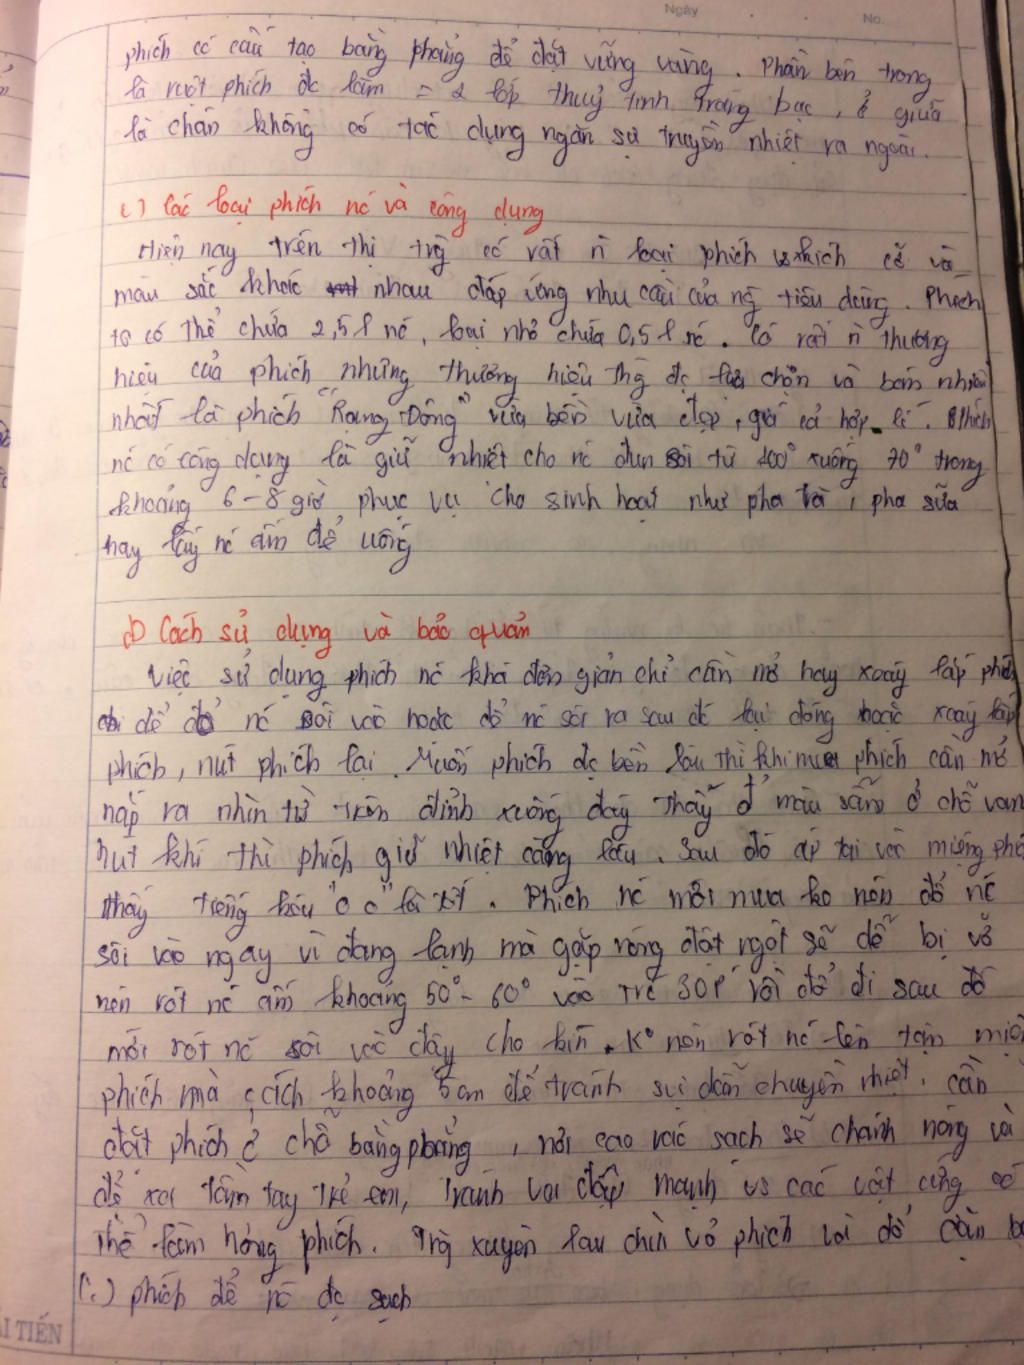 Ngày
No.
phích có cấu tạo bằng phẳng để đặt vững vàng. Phần bên trong
là ruột phích đc làm = 2 lớp thuỷ tinh tráng bạc, ở giữa
là chân không có tác dụng ngăn sự truyền nhiệt ra ngoài.
c) Các loại phích nc và công dụng
Hiện nay trên thị trg có rất n loại phích vs kích cỡ và
màu sắc khác nhau đáp ứng nhu cầu của ng tiêu dùng. Phích
to có thể chứa 2,5l nc, loại nhỏ chứa 0,5l nc. Có rất n thương
hiệu của phích những thương hiệu thg đc lựa chọn và bán nhiều
nhất là phích "Rạng Đông" vừa bền vừa đẹp, giá cả hợp lí. Phích
nc có công dụng là giữ nhiệt cho nc đun sôi từ 100° xuống 70° trong
khoảng 6-8 giờ phục vụ cho sinh hoạt như pha trà, pha sữa
hay lấy nc ấm để uống
d) Cách sử dụng và bảo quản
Việc sử dụng phích nc khá đơn giản chỉ cần mở hay xoáy lắp phích
để đổ nc sôi vào hoặc đổ nc sôi ra sau đó lại đóng hoặc xoáy lắp
phích, nút phích lại. Muốn phích đc bền lâu thì khi mua phích cần mở
nắp ra nhìn từ trên đỉnh xuống đáy thấy màu sẫm ở chỗ van
hút khí thì phích giữ nhiệt càng lâu. Sau đó áp tai vào miệng phích
thấy tiếng kêu "o o" là tốt. Phích nc mới mua ko nên đổ nc
sôi vào ngay vì đang lạnh mà gặp nóng đột ngột sẽ dễ bị vỡ
nên rót nc ấm khoảng 50°- 60° vào trc 30P rồi đổ đi sau đó
mới rót nc sôi vào đầy cho kín. K° nên rót nc lên tận miệng
phích mà cách khoảng 5cm để tránh sự dẫn chuyền nhiệt. cần
đặt phích ở chỗ bằng phẳng, nơi cao ráo sạch sẽ chánh nóng và
để xa tầm tay trẻ em, tránh va đập mạnh vs các vật cứng có
thể làm hỏng phích. Trg xuyên lau chùi vỏ phích cần
phích để nc đc sạch
ẢI TIẾN